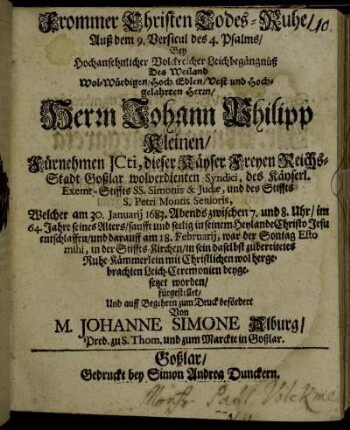 Frommer Christen Todes-Ruhe/
10
Auß dem 9. Versicul des 4. Psalms/
Bey
Hochansehnlicher Volckreicher Leichbegängnüß
Des Weiland
Wol-Würdigen/Hoch Edlen/Vest und Hoch-
gelahrten Herrn/
Herrn Johann Philipp
Kleinen/
Fürnehmen JCti, dieser Käyser Freyen Reichs-
Stadt Goßlar wolverdienten Syndici, des Käyserl.
Exemt-Stiffts SS. Simonis & Judæ, und des Stiffts
S. Petri Montis Senioris,
Welcher am 30. Januarij 1683. Abends zwischen 7. und 8. Uhr/ im
64. Jahre seines Alters/ sanfft und seelig in seinem Heylande Christo Jesu
entschlaffen/ und darauff am 18. Februarij, war der Sontag Esto
mihi, in der Stiffts-Kirchen/ in sein daselbst zubereitetes
Ruhe-Kämmerlein mit Christlichen wol herge-
brachten Leich-Ceremonien beyge-
setzet worden/
fürgestellet/
Und auff Begehren zum Druck befördert
Von
M. JOHANNE SIMONE Alburg/
Pred. zu S. Thom. und zum Marckte in Goßlar.
Goßlar/
Gedruckt bey Simon Andrea Dunckern.